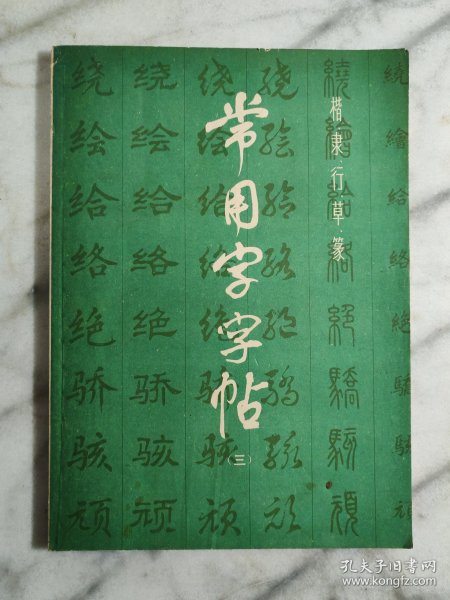 常用字字帖
(三)
楷、隶、行、草、篆
绕绘给络绝骄骇顽
绕绘给络绝骄骇顽
绕绘给络绝骄骇顽
绕绘给络绝骄骇顽
繞繪給絡絕驕駭頑
繞繪給絡絶驕駭頑
孔夫子旧书网
www.kongfz.com